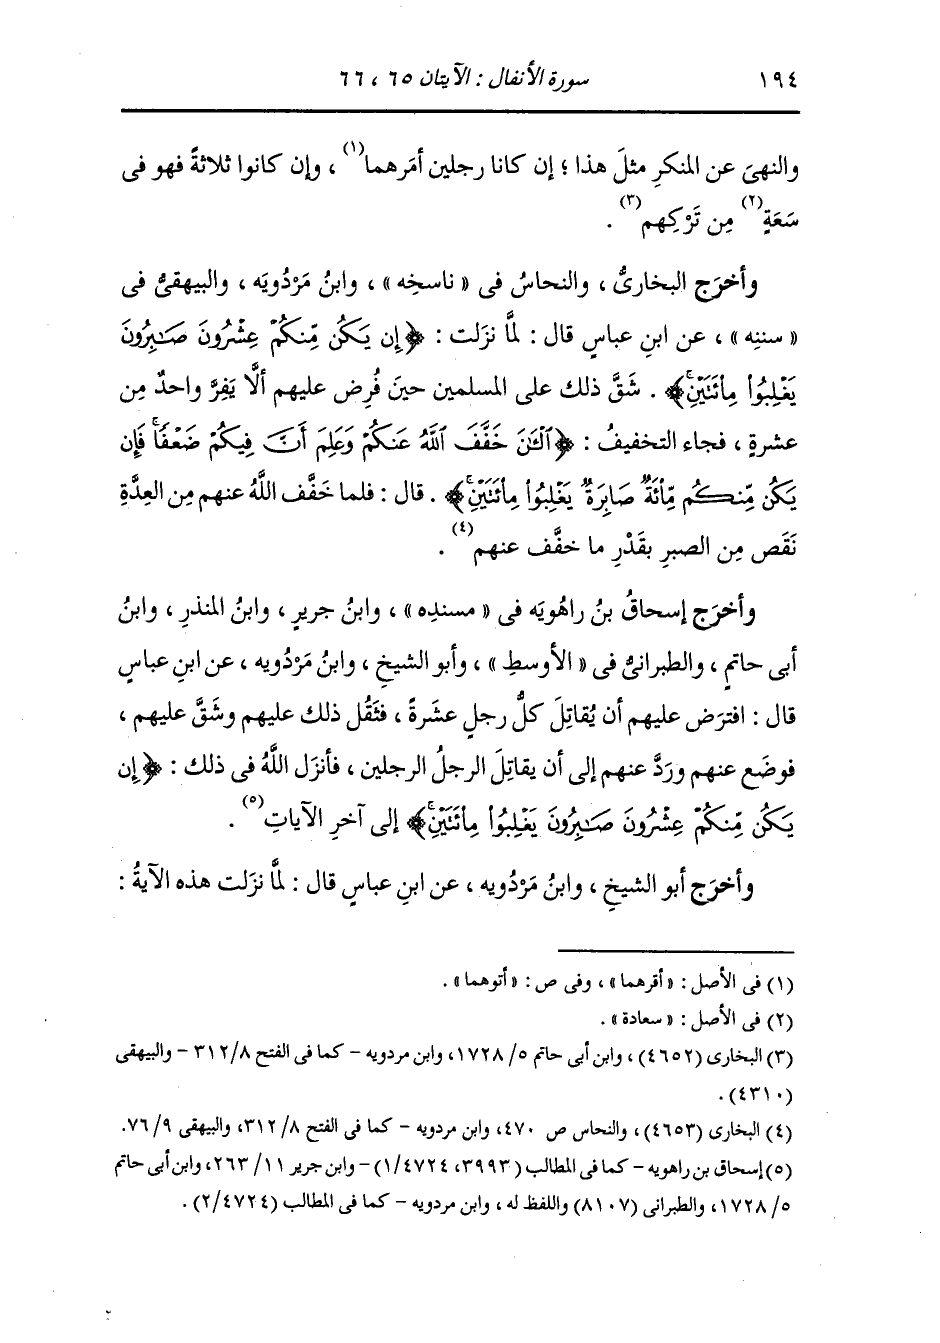 ١٩٤ سورة الأنفال : الآيتان ٦٥ ، ٦٦
والنهىَ عن المنكرِ مثلَ هذا ؛ إن كانا رجلين أمَرهما(١) ، وإن كانوا ثلاثةً فهو فى
سَعَةٍ(٢) مِن تَرْكِهم(٣) .
وأخرَج البخارىُّ ، والنحاسُ فى « ناسخِه » ، وابنُ مَرْدُويَه ، والبيهقىُّ فى
« سننِه » ، عن ابنِ عباسٍ قال : لمَّا نزَلت : ﴿إِن يَكُن مِّنكُمْ عِشْرُونَ صَٰبِرُونَ
يَغْلِبُوا۟ مِا۟ئَتَيْنِۚ﴾ . شَقَّ ذلك على المسلمين حينَ فُرِض عليهم ألَّا يَفِرَّ واحدٌ مِن
عشرةٍ ، فجاء التخفيفُ : ﴿ٱلْـَٰٔنَ خَفَّفَ ٱللَّهُ عَنكُمْ وَعَلِمَ أَنَّ فِيكُمْ ضَعْفًاۚ فَإِن
يَكُن مِّنكُم مِّا۟ئَةٌ صَابِرَةٌ يَغْلِبُوا۟ مِا۟ئَتَيْنِۚ﴾ . قال : فلما خفَّف اللَّهُ عنهم مِن العِدَّةِ
نَقَص مِن الصبرِ بقَدْرِ ما خفَّف عنهم(٤) .
وأخرَج إسحاقُ بنُ راهُويَه فى « مسندِه » ، وابنُ جريرٍ ، وابنُ المنذرِ ، وابنُ
أبى حاتمٍ ، والطبرانىُّ فى « الأوسطِ » ، وأبو الشيخِ ، وابنُ مَرْدُويه ، عن ابنِ عباسٍ
قال : افترَض عليهم أن يُقاتِلَ كلُّ رجلٍ عشَرةً ، فثَقُل ذلك عليهم وشَقَّ عليهم ،
فوضَع عنهم وردَّ عنهم إلى أن يقاتِلَ الرجلُ الرجلين ، فأنزَل اللَّهُ فى ذلك : ﴿إِن
يَكُن مِّنكُمْ عِشْرُونَ صَٰبِرُونَ يَغْلِبُوا۟ مِا۟ئَتَيْنِۚ﴾ إلى آخرِ الآياتِ(٥) .
وأخرَج أبو الشيخِ ، وابنُ مَرْدُويه ، عن ابنِ عباسٍ قال : لمَّا نزَلت هذه الآيةُ :
(١) فى الأصل : « أقرهما » ، وفى ص : « أتوهما » .
(٢) فى الأصل : « سعادة » .
(٣) البخارى (٤٦٥٢) ، وابن أبى حاتم ٥/ ١٧٢٨، وابن مردويه – كما فى الفتح ٣١٢/٨ – والبيهقى
(٤٣١٠) .
(٤) البخارى (٤٦٥٣) ، والنحاس ص ٤٧٠، وابن مردويه – كما فى الفتح ٣١٢/٨، والبيهقى ٩ /٧٦.
(٥) إسحاق بن راهويه – كما فى المطالب (٣٩٩٣، ١/٤٧٢٤) – وابن جرير ١١/ ٢٦٣، وابن أبى حاتم
٥/ ١٧٢٨، والطبرانى (٨١٠٧) واللفظ له ، وابن مردويه – كما فى المطالب (٢/٤٧٢٤) .